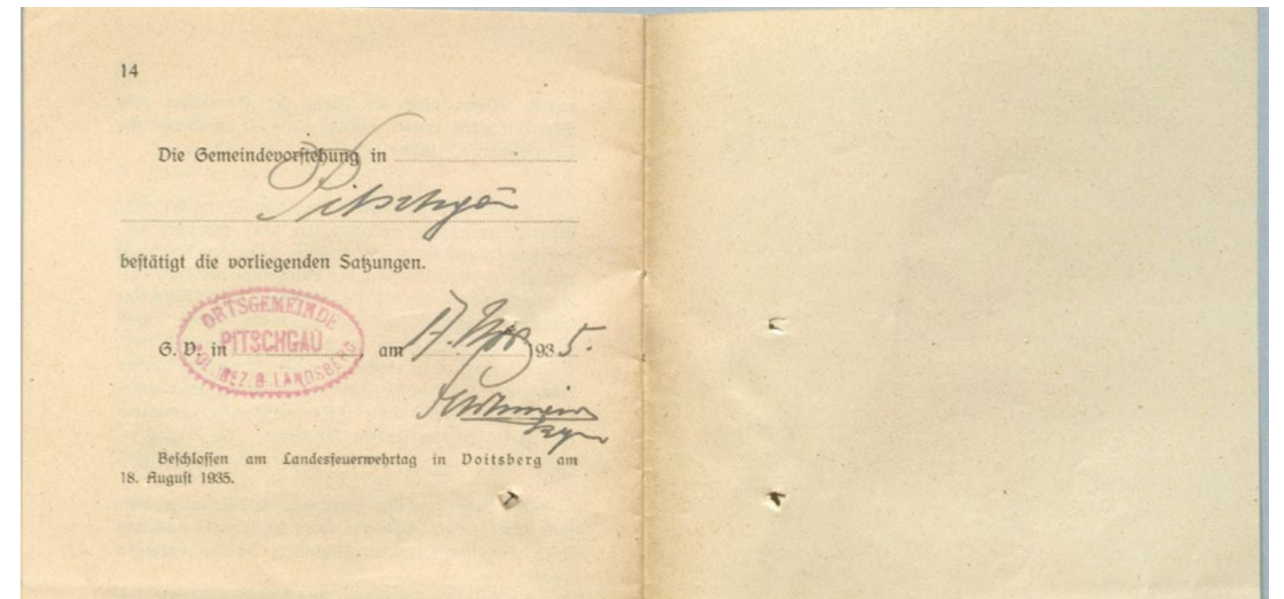 14
Die Gemeindevorstehung in
Pitschgau
bestätigt die vorliegenden Satzungen.
ORTSGEMEINDE
PITSCHGAU
POL. BEZ. D. LANDSBERG
G. V. in , am 17. Nov. 1935.
Beschlossen am Landesfeuerwehrtag in Voitsberg am
18. August 1935.